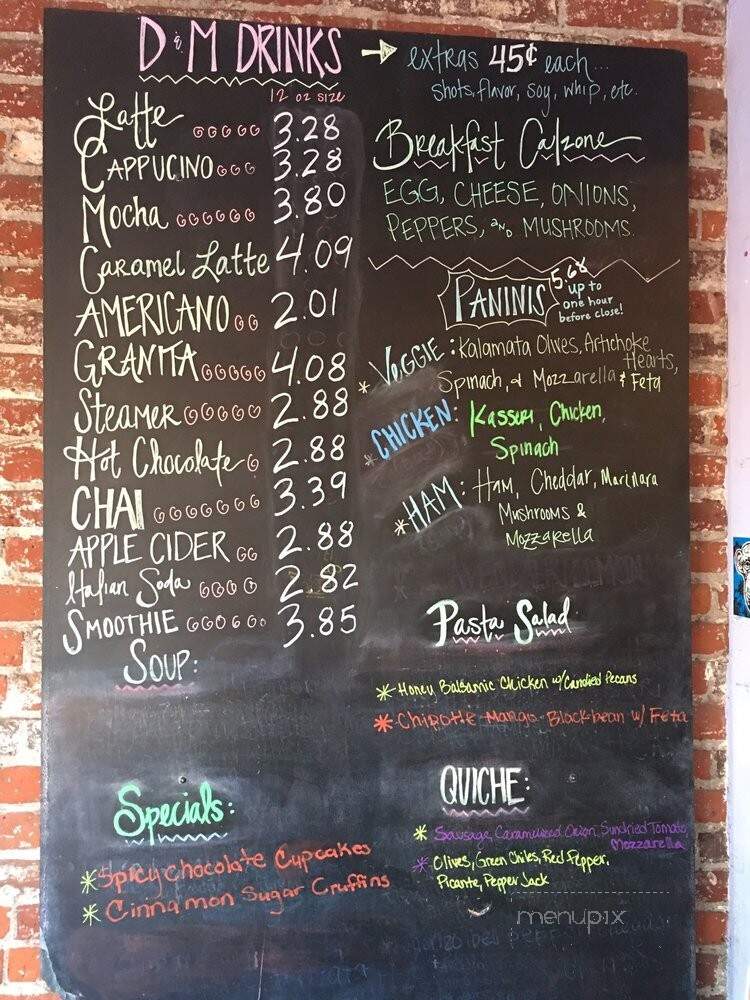 D & M DRINKS
12 oz size
Latte 3.28
CAPPUCINO 3.28
Mocha 3.80
Caramel Latte 4.09
AMERICANO 2.01
GRANITA 4.08
Steamer 2.88
Hot Chocolate 2.88
CHAI 3.39
APPLE CIDER 2.88
Italian Soda 2.82
SMOOTHIE 3.85
SOUP:
Specials:
* Spicy Chocolate Cupcakes
* Cinnamon Sugar Cruffins
→ extras 45¢ each...
shots, flavor, soy, whip, etc.
Breakfast Calzone
EGG, CHEESE, ONIONS,
PEPPERS, AND MUSHROOMS.
PANINIS 5.68
up to
one hour
before close!
* VEGGIE: Kalamata Olives, Artichoke
Hearts,
Spinach, & Mozzarella & Feta
* CHICKEN: Kasseri, Chicken,
Spinach
* HAM: HAM, Cheddar, Marinara
Mushrooms &
Mozzarella
Pasta Salad
* Honey Balsamic Chicken w/Candied Pecans
* Chipotle Mango Blackbean w/ Feta
QUICHE:
* Sausage, Caramelized Onion, Sundried Tomato,
Mozzarella
* Olives, Green Chiles, Red Pepper,
Picante, Pepper Jack
menupix